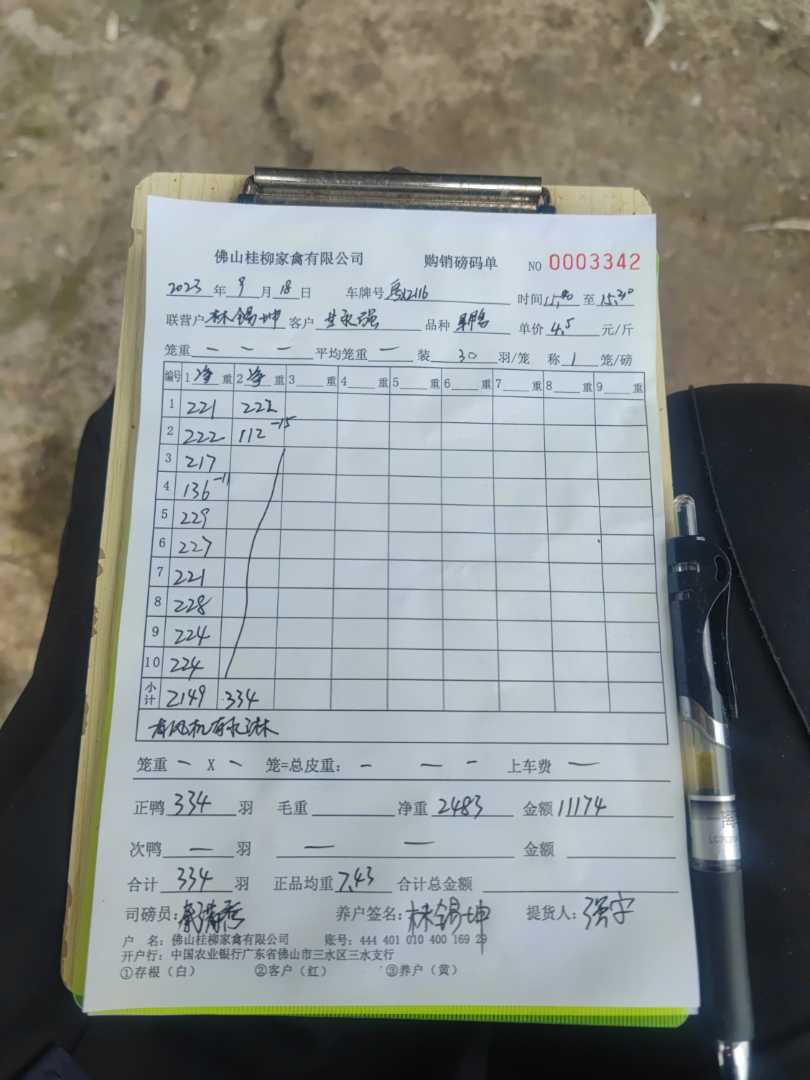 佛山桂柳家禽有限公司 购销磅码单 NO 0003342
2023 年 9 月 18 日 车牌号 时间 15:00 至 15:30
联营户 林锡坤 客户 品种 单价 4.5 元/斤
笼重 — — — 平均笼重 — 装 30 羽/笼 称 1 笼/磅
编号 1 净 重 2 净 重 3 重 4 重 5 重 6 重 7 重 8 重 9 重
1 221 222
2 222 112 -15
3 217
4 136 -11
5 229
6 227
7 221
8 228
9 224
10 224
小计 2149 334
有风机有水淋
笼重 — X — 笼=总皮重: — — — 上车费 —
正鸭 334 羽 毛重 净重 2483 金额 11174
次鸭 — 羽 — — 金额
合计 334 羽 正品均重 7.43 合计总金额
司磅员: 养户签名: 林锡坤 提货人:
户 名: 佛山桂柳家禽有限公司 账号: 444 401 010 400 169 29
开户行: 中国农业银行广东省佛山市三水区三水支行
①存根(白) ②客户(红) ③养户(黄)